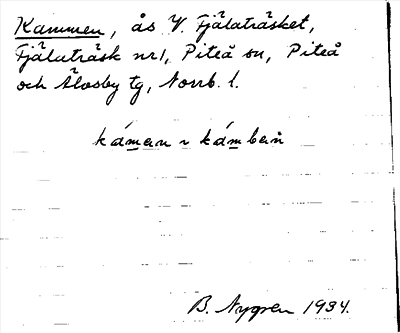 Kammen, ås V. Fjälaträsket,
Fjälaträsk nr 1, Piteå sn, Piteå
och Älvsby tg, Norrb. l.
káman ~ kámben̊
B. Nygren 1934.